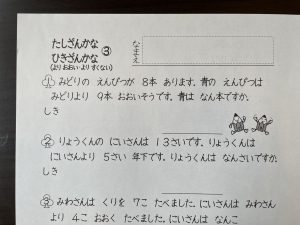 たしざんかな
ひきざんかな
(よりおおい・よりすくない)
③
なまえ
① みどりの えんぴつが 8本 あります。青の えんぴつは
みどりより 9本 おおいそうです。青は なん本ですか。
しき
② りょうくんの にいさんは 13さいです。りょうくんは
にいさんより 5さい 年下です。りょうくんは なんさいですか。
しき
③ みわさんは くりを 7こ たべました。にいさんは みわさん
より 4こ おおく たべました。にいさんは なんこ